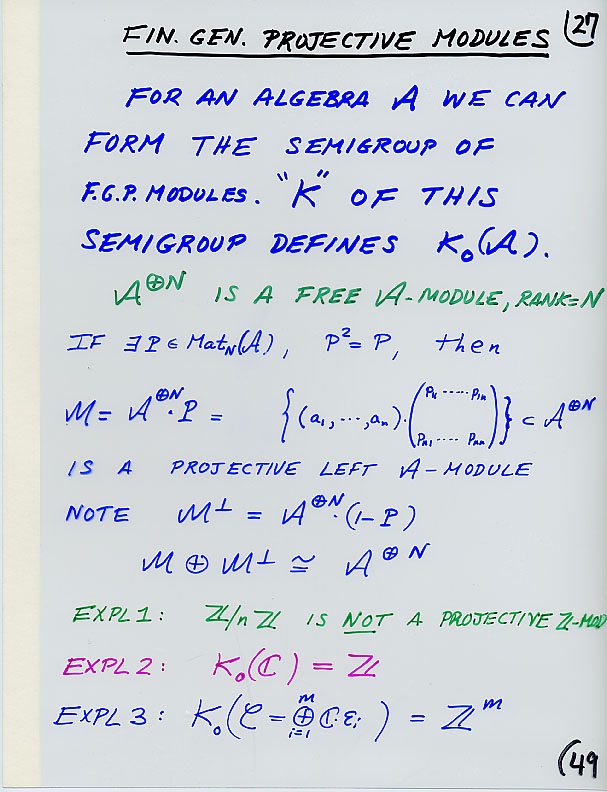 FIN. GEN. PROJECTIVE MODULES (27
FOR AN ALGEBRA A WE CAN
FORM THE SEMIGROUP OF
F.G.P. MODULES. "K" OF THIS
SEMIGROUP DEFINES K₀(A).
A^⊕N IS A FREE A-MODULE, RANK=N
IF ∃ P ∈ Mat_N(A), P² = P, then
M = A^⊕N · P = {(a₁, ···, aₙ) · (p₁₁ ····· p₁ₙ / pₙ₁ ···· pₙₙ)} ⊂ A^⊕N
IS A PROJECTIVE LEFT A-MODULE
NOTE M^⊥ = A^⊕N · (1-P)
M ⊕ M^⊥ ≅ A^⊕N
EXPL 1: ℤ/nℤ IS NOT A PROJECTIVE ℤ-MOD
EXPL 2: K₀(ℂ) = ℤ
EXPL 3: K₀(C = ⊕_{i=1}^{m} ℂεᵢ) = ℤ^m
(49